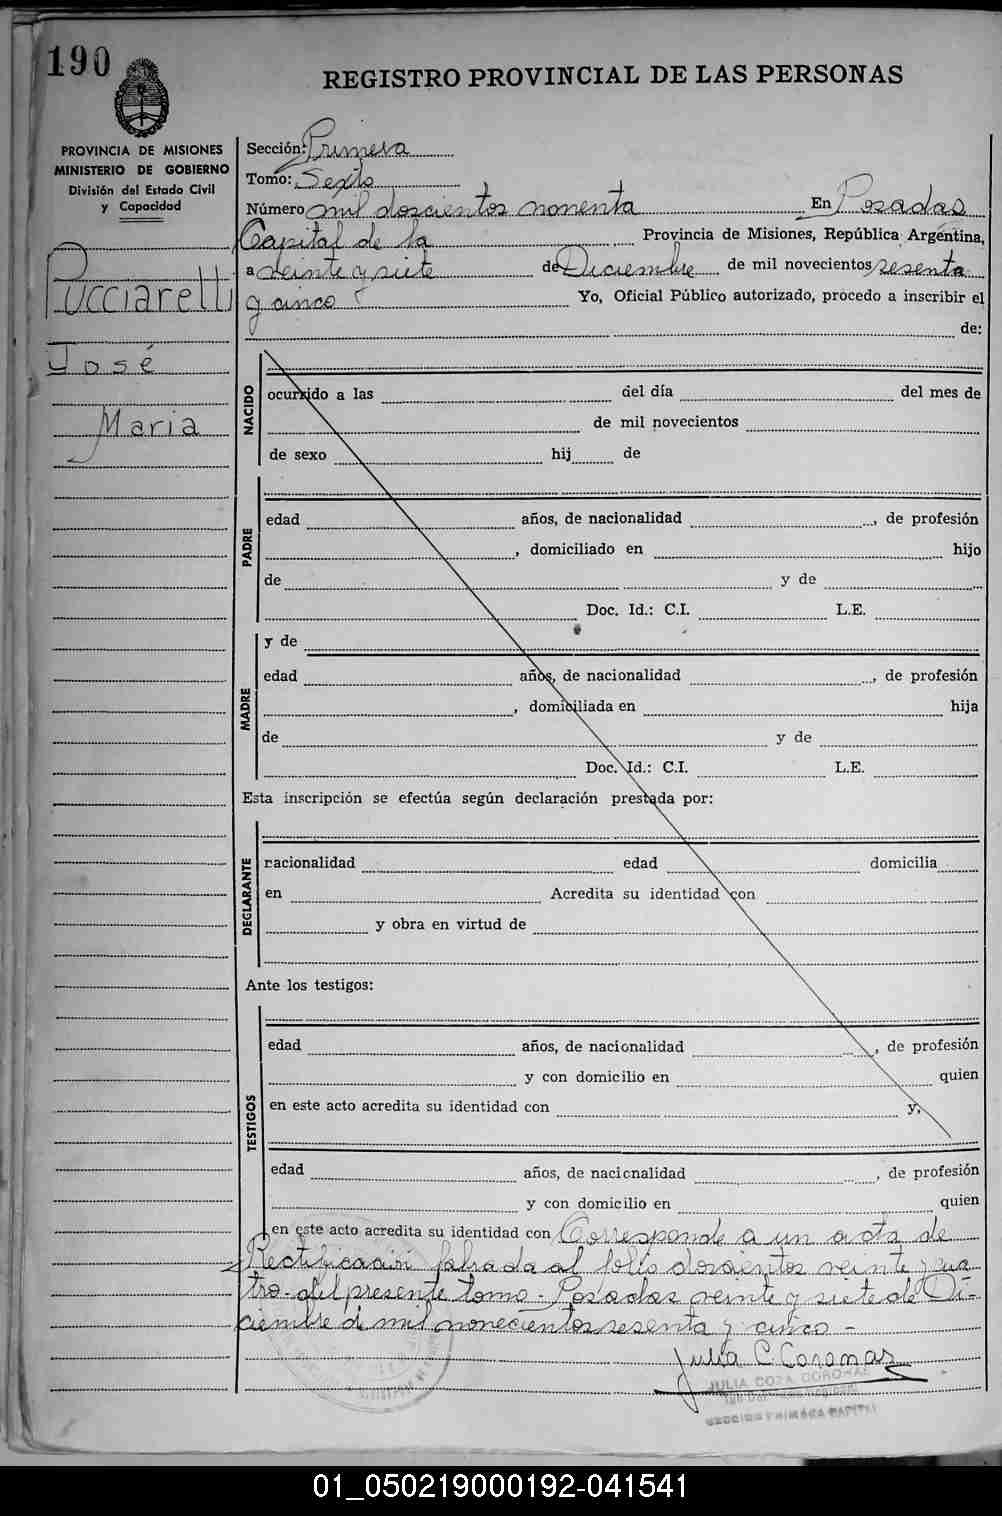 190
REGISTRO PROVINCIAL DE LAS PERSONAS
PROVINCIA DE MISIONES
MINISTERIO DE GOBIERNO
División del Estado Civil
y Capacidad
Pucciarelli
José
Maria
Sección: Primera
Tomo: Sexto
Número mil doscientos nonenta En Posadas
Capital de la Provincia de Misiones, República Argentina,
a veinte y siete de Diciembre de mil novecientos sesenta
y cinco Yo, Oficial Público autorizado, procedo a inscribir el
de:
NACIDO
ocurrido a las del día del mes de
de mil novecientos
de sexo hij de
PADRE
edad años, de nacionalidad , de profesión
, domiciliado en hijo
de y de
Doc. Id.: C.I. L.E.
MADRE
y de
edad años, de nacionalidad , de profesión
, domiciliada en hija
de y de
Doc. Id.: C.I. L.E.
Esta inscripción se efectúa según declaración prestada por:
DECLARANTE
nacionalidad edad domicilia
en Acredita su identidad con
y obra en virtud de
Ante los testigos:
TESTIGOS
edad años, de nacionalidad , de profesión
y con domicilio en quien
en este acto acredita su identidad con y,
edad años, de nacionalidad , de profesión
y con domicilio en quien
en este acto acredita su identidad con Corresponde a un acta de
Rectificación labrada al folio doscientos veinte y cua
tro - del presente tomo - Posadas veinte y siete de Di-
ciembre de mil nonecientos sesenta y cinco -
Julia C. Coronas
JULIA COZA CORONAS
SECCION PRIMERA CAPITAL
01_050219000192-041541